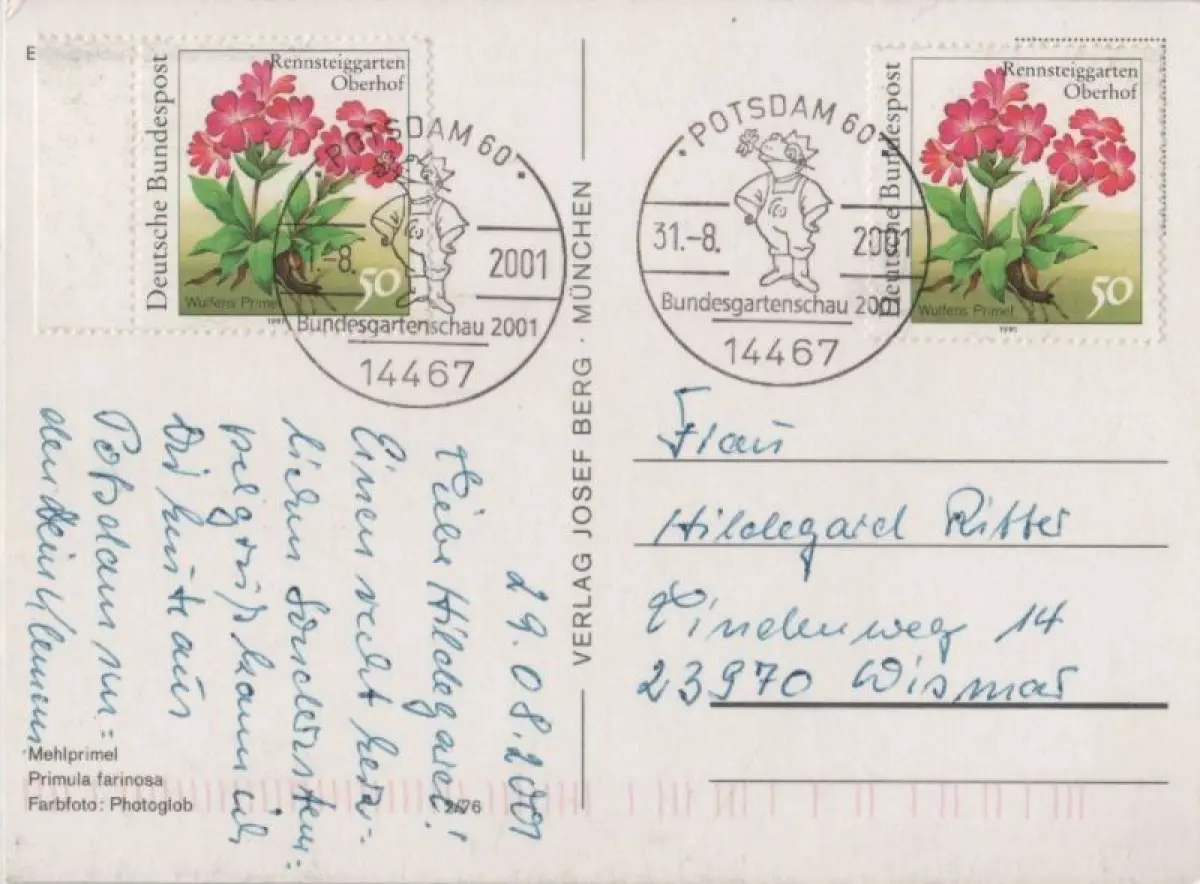 E
Deutsche Bundespost
Rennsteiggarten
Oberhof
Wulfens Primel
50
POTSDAM 60
1.-8.
2001
Bundesgartenschau 2001
14467
Deutsche Bundespost
Rennsteiggarten
Oberhof
Wulfens Primel
50
1991
POTSDAM 60
31.-8.
2001
Bundesgartenschau 200
14467
VERLAG JOSEF BERG · MÜNCHEN
29.08.2001
Liebe Hildegard!
Einen recht herz-
lichen Sonderstem=
pelgruß kann ich
Dir heute aus
Potsdam
Frau
Hildegard Ritter
Lindenweg 14
23970 Wismar
Mehlprimel
Primula farinosa
Farbfoto: Photoglob
2/76